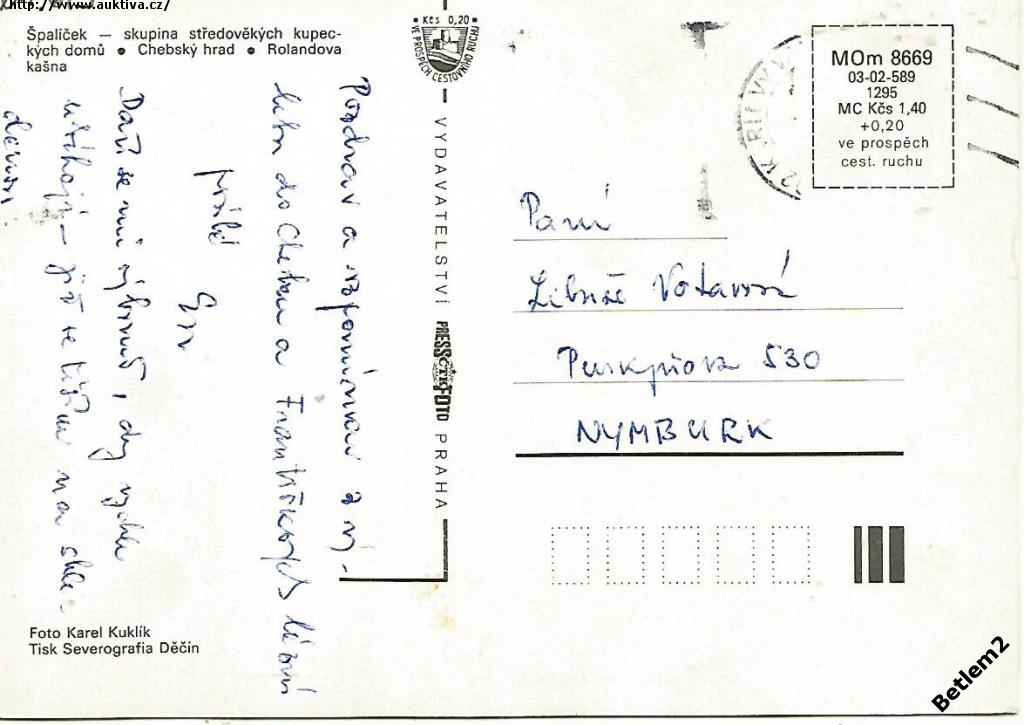 http://www.auktiva.cz/
Špalíček — skupina středověkých kupec-
kých domů • Chebský hrad • Rolandova
kašna
Kčs 0,20
VE PROSPĚCH CESTOVNÍHO RUCHU
MOm 8669
03-02-589
1295
MC Kčs 1,40
+0,20
ve prospěch
cest. ruchu
Pozdrav a vzpomínku z vý-
letu do Chebu a Františkových lázní
Daří se mi výborně, dny rychle
utíkají – již se těším na shle-
danou
VYDAVATELSTVÍ PRESSFOTO PRAHA
ČTK
Paní
Libuše Votavová
Purkyňova 530
NYMBURK
Foto Karel Kuklík
Tisk Severografia Děčín
Betlem2